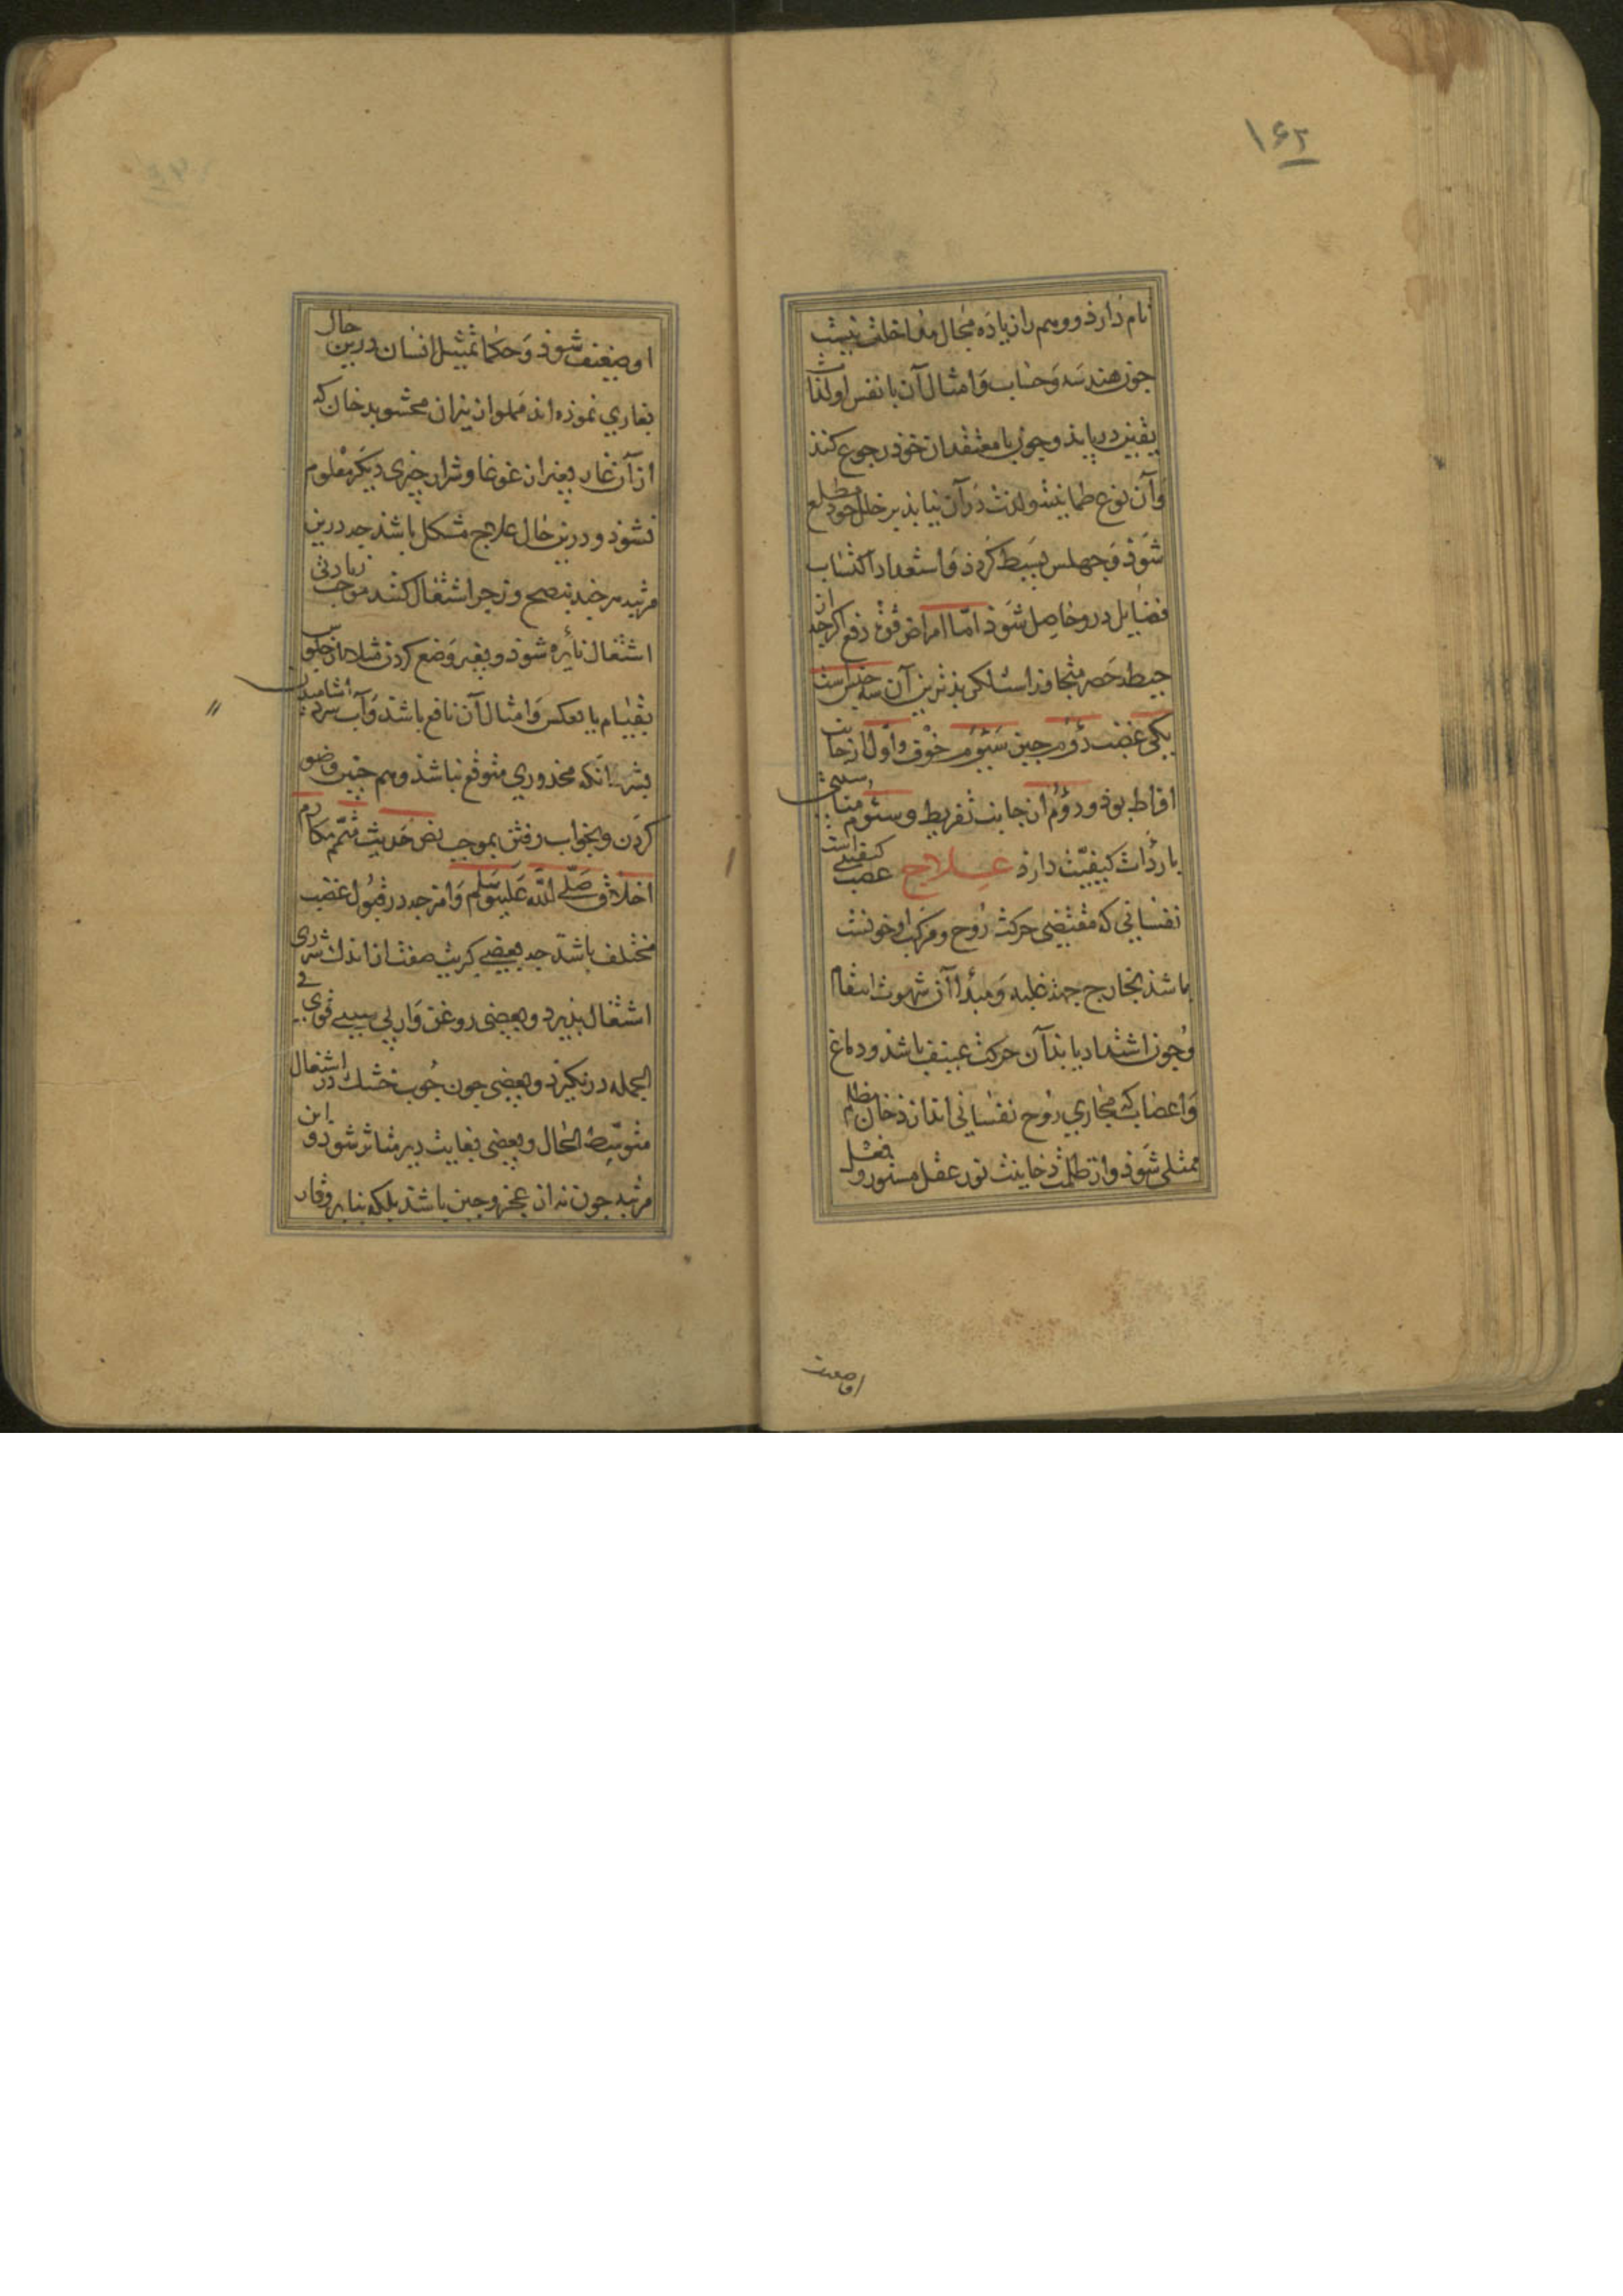 ۱۶۲
تام دارذ و وهم را زیاده مجال مداخلت نیست
جون هندسه و حساب و امثال آن با نفس او لذت
یقین دریابذ و جون با معتقدان خوذ رجوع کنذ
و آن نوع طمانینت و لذت در آن نیابذ بر خلل خود مطلع
شوذ و جهلس بسیط کرذذ و استعداد اکتساب
فضایل درو حاصل شوذ اما امراض قوت دفع اکرجه از
حیطه حصر متجاوز است لکن بذترین آن سه جیز است
یکی غضب دؤم جبن سیؤم خوف و اول از جانب
افراط بوذ و دؤم از جانب تفریط و سیؤم مناسبتی
با ردأت کیفیت دارذ علاج غضب کیفیتی است
نفسانی که مقتضی حرکت روح و مرکب او خونست
باشذ بخارج جهة غلبه و مبدأ آن شهوت انتقام
و جون اشتداد یابذ آن حرکت عنیف باشذ و دماغ
و اعصاب که مجاری روح نفسانی اند از دخان مظلم
ممتلی شوذ و از ظلمت دخانیت نور عقل مستور و فعل
او ضعیف
او ضعیف شوذ و حکما تمثیل انسان درین حال
بغاری نموذه اند مملو از نیران محشو بدخان که
از آن غار بغیر از غوغا و شرار جیزی دیکر معلوم
نشوذ و درین حال علاج مشکل باشذ جه درین
مرتبه هر جند بنصح و زجر اشتغال کنند موجب زیادتی
اشتعال نائره شوذ و بغیر وضع کردن مثلا از جلوس
بقیام یا بعکس و امثال آن نافع باشذ و آب سرد آشامیدن
بشرط آنکه محذوری متوقع نباشذ و هم جنین وضو
کردن و بخواب رفتن بموجب نص حدیث متمم مکارم
اخلاق صلی الله علیه و سلم و امزجه در قبول غضب
مختلف باشذ جه بعضی کبریت صفت از اندک شرری
اشتعال بذیرد و بعضی روغن وار بی سببی قوی فی
الجمله در نکیرد و بعضی جون جوب خشک در اشتعال
متوسط الحال و بعضی بغایت دیر متاثر شود و این
مرتبه جون نه از عجز و جبن باشذ بلکه بنا بر وقار